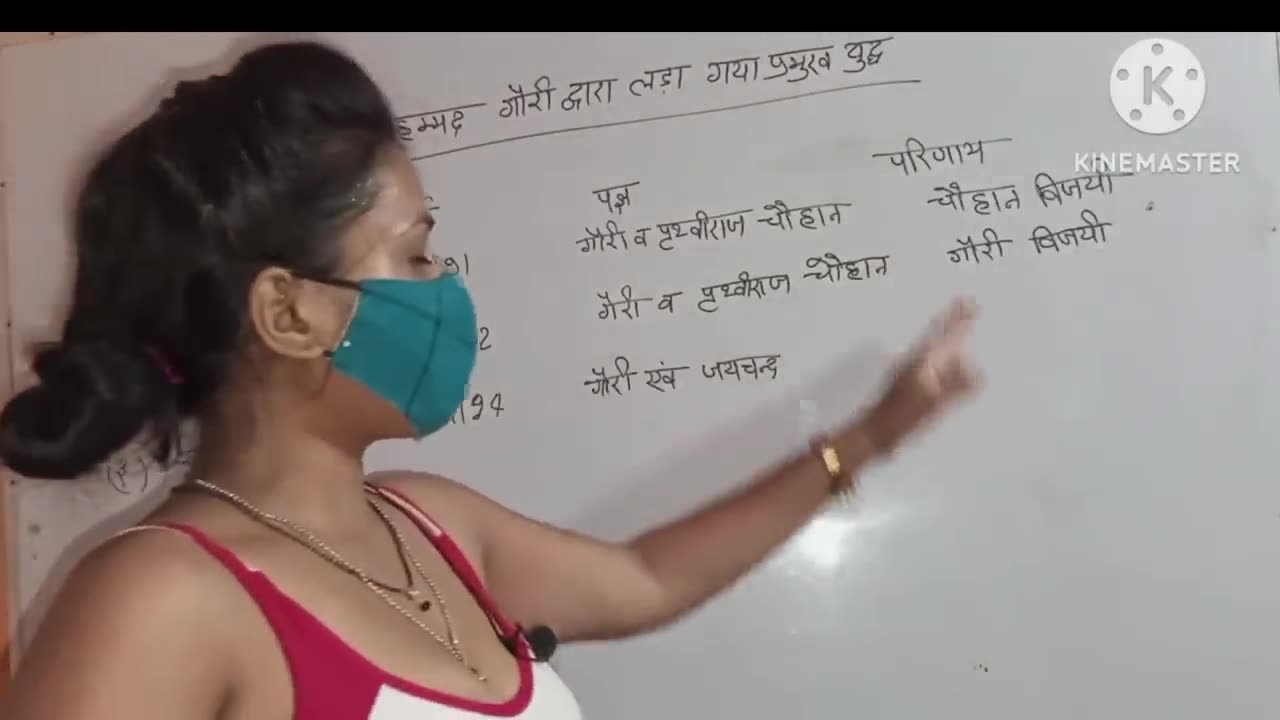 हम्मद गौरी द्वारा लड़ा गया प्रमुख युद्ध
पक्ष परिणाम
91 गौरी व पृथ्वीराज चौहान चौहान विजयी
2 गौरी व पृथ्वीराज चौहान गौरी विजयी
1194 गौरी एवं जयचन्द्र
KINEMASTER